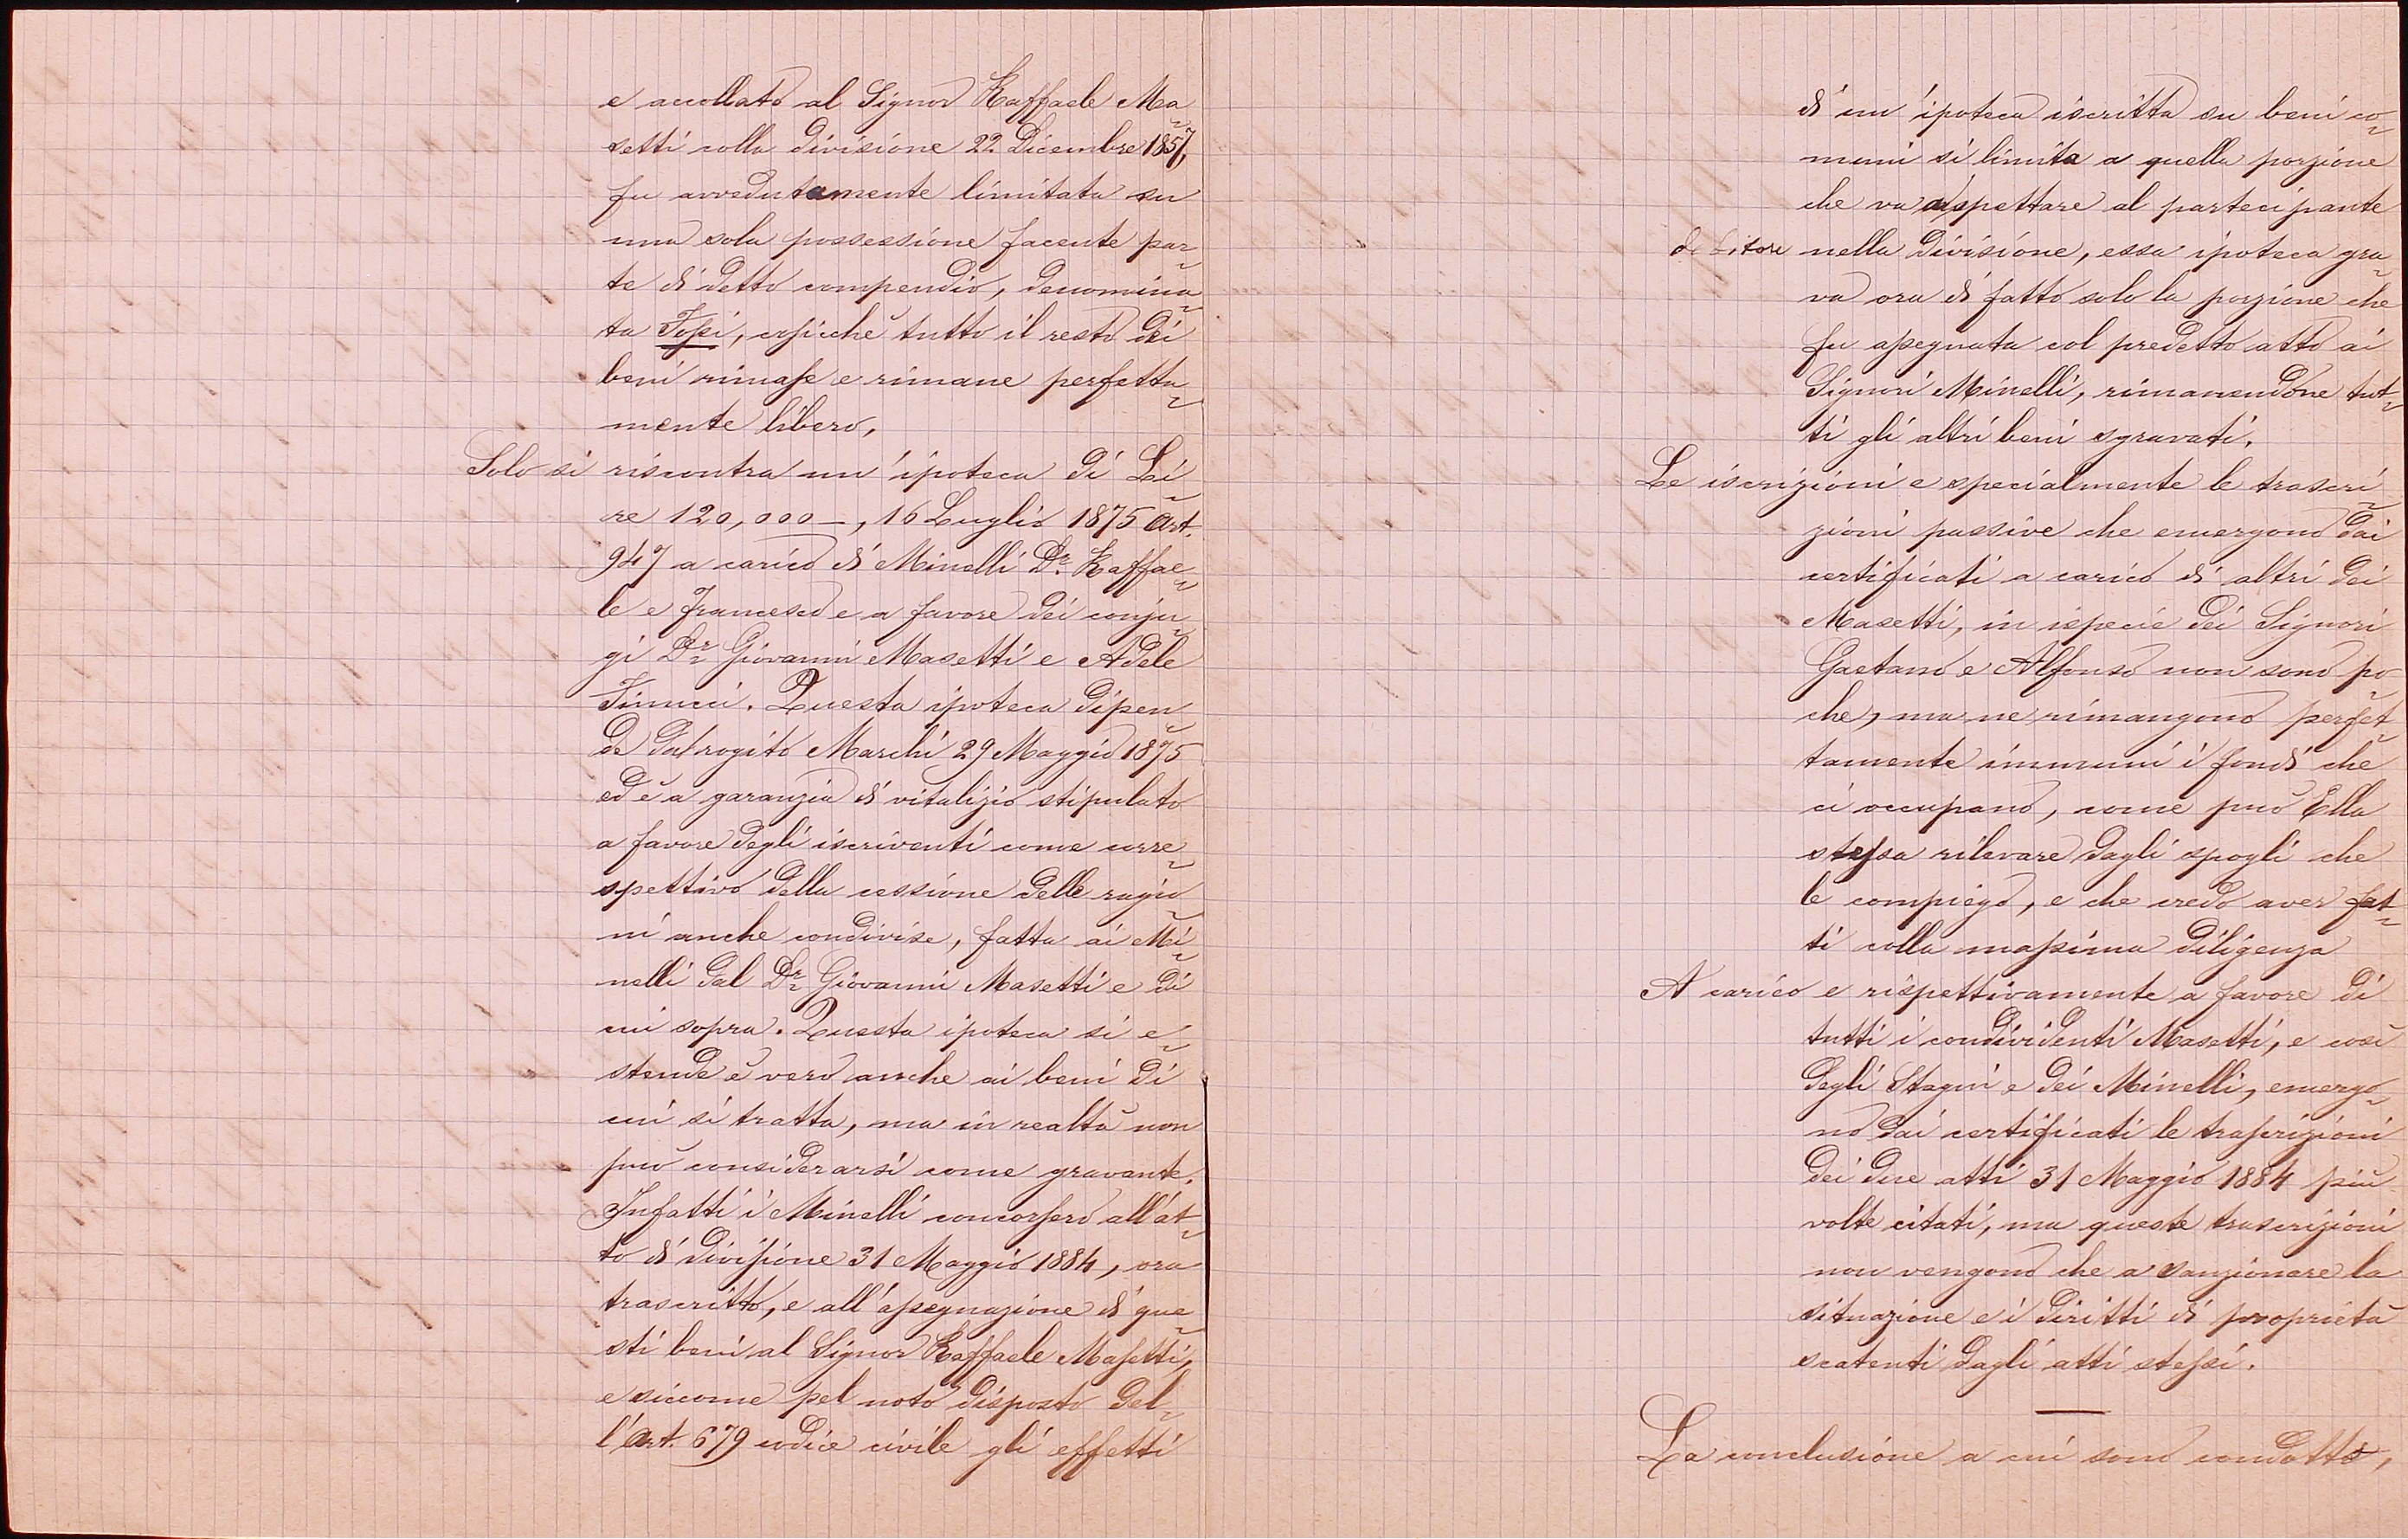 e accollato al Signor Raffaele Ma-
setti colla divisione 22 Dicembre 1857,
fu avvedutamente limitata su
una sola possessione facente par-
te di detto compendio, denomina-
ta Fossi, cosicchè tutto il resto dei
beni rimase e rimane perfetta-
mente libero.
Solo si riscontra un'ipoteca di Li-
re 120,000 —, 16 Luglio 1875 Art.
947 a carico di Minelli Dr. Raffae-
le e Francesco e a favore dei conju-
gi Dr. Giovanni Masetti e Adele
Finucci. Questa ipoteca dipen-
de dal rogito Marchi 29 Maggio 1875
ed è a garanzia di vitalizio stipulato
a favore degli iscriventi come corre-
spettivo della cessione delle ragio-
ni anche condivise, fatta ai Mi-
nelli dal Dr. Giovanni Masetti e di
cui sopra. Questa ipoteca si e-
stende è vero anche ai beni di
cui si tratta, ma in realtà non
può considerarsi come gravante.
Infatti i Minelli concorsero all'at-
to di divisione 31 Maggio 1884, ora
trascritto, e all'assegnazione di que-
sti beni al Signor Raffaele Masetti,
e siccome pel noto disposto del-
l'Art. 679 codice civile gli effetti
di un'ipoteca iscritta su beni co-
muni si limita a quella porzione
che va a spettare al partecipante
debitore nella divisione, essa ipoteca gra-
va ora di fatto solo la porzione che
fu assegnata col predetto atto ai
Signori Minelli, rimanendone tut-
ti gli altri beni sgravati.
Le iscrizioni e specialmente le trascri-
zioni passive che emergono dai
certificati a carico di altri dei
Masetti, in ispecie dei Signori
Gaetano e Alfonso non sono po-
che, ma ne rimangono perfet-
tamente immuni i fondi che
ci occupano, come può Ella
stessa rilevare dagli spogli che
le compiego, e che credo aver fat-
ti colla massima diligenza
A carico e rispettivamente a favore di
tutti i condividenti Masetti, e così
degli Stagni e dei Minelli, emergo-
no dai certificati le trascrizioni
dei due atti 31 Maggio 1884 più
volte citati, ma queste trascrizioni
non vengono che a sanzionare la
situazione e i diritti di proprietà
scatenti dagli atti stessi.
La conclusione a cui sono condotto,